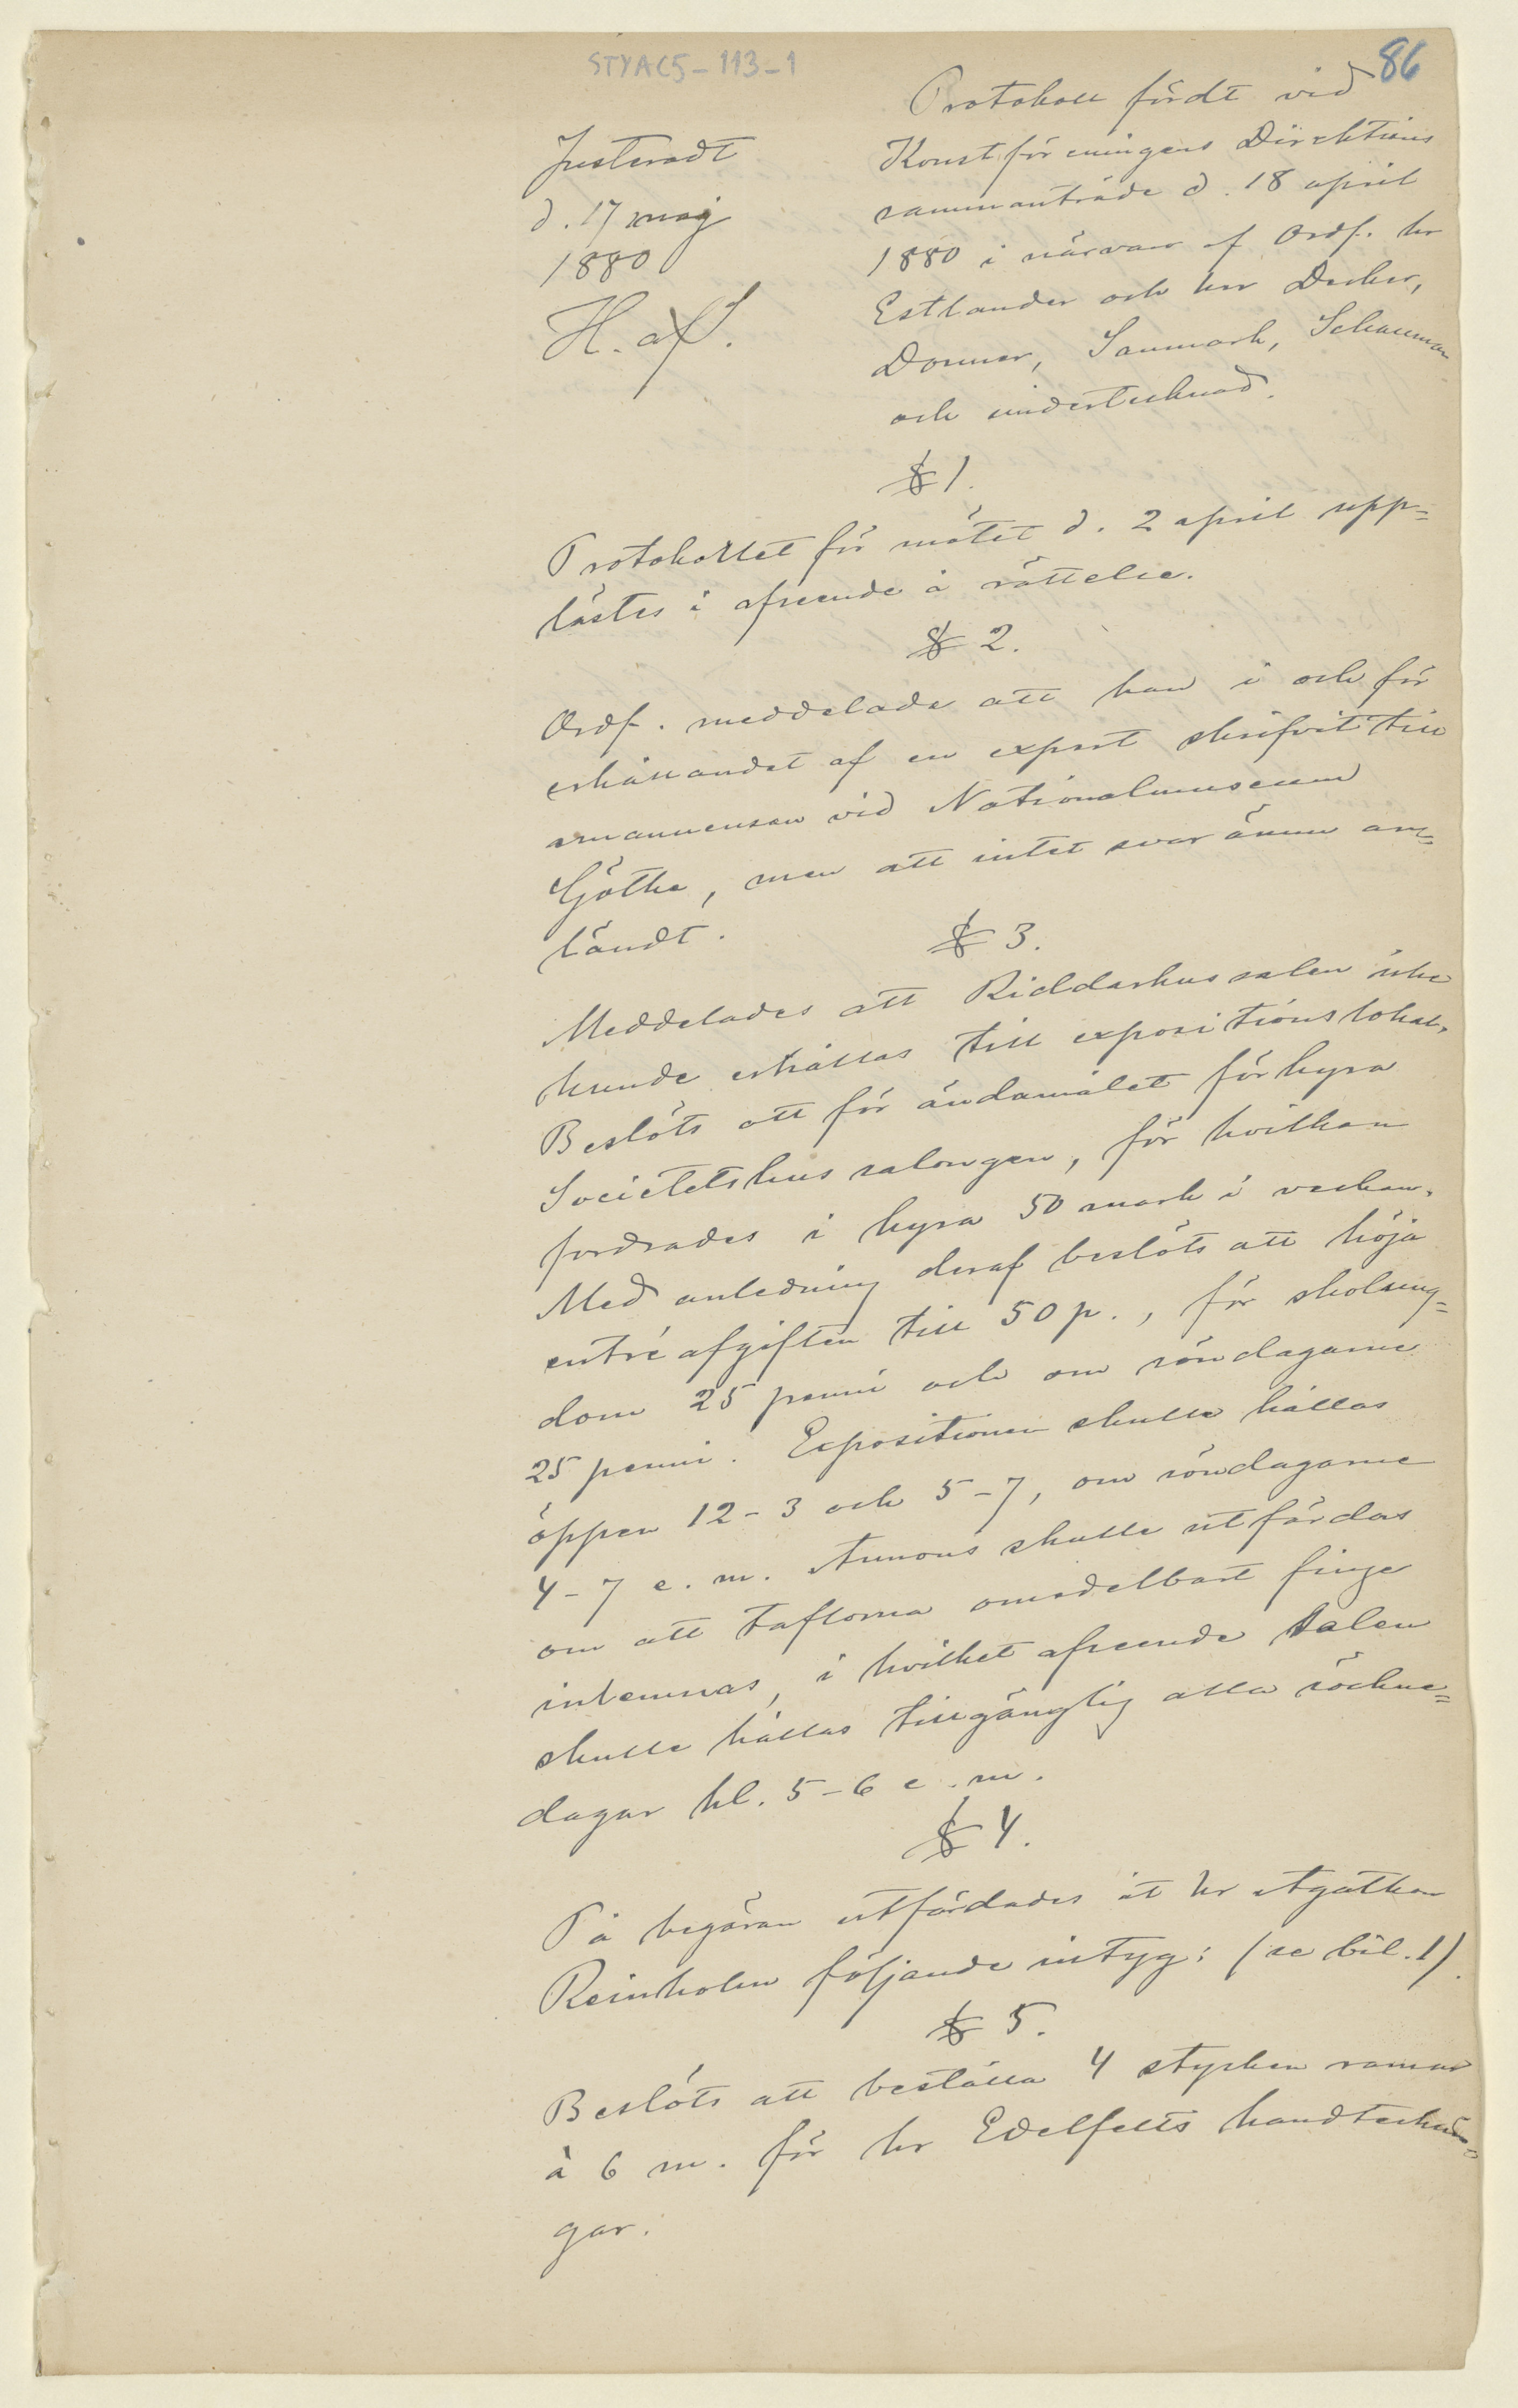 STYAC5-113-1
86
Protokoll fördt vid
Konstföreningens Direktions
sammanträde d. 18 april
1880 i närvaro af Ordf. hr
Estlander och hrr Decker,
Donner, Sanmark, Schauman
och undertecknad.
Justeradt
d. 17 maj
1880
§ 1.
Protokollet för mötet d. 2 april upp=
lästes i afseende å rättelse.
§ 2.
Ordf. meddelade att han i och för
erhållandet af en expert skrifvit till
amanuensen vid Nationalmuseum
Göthe, men att intet svar ännu an=
ländt.
§ 3.
Meddelades att Riddarhussalen icke
kunde erhållas till expositionslokal.
Beslöts att för ändamålet förhyra
Societetshus salongen, för hvilken
fordrades i hyra 50 mark i veckan.
Med anledning deraf beslöts att höja
entré afgiften till 50 p., för skolung=
dom 25 penni och om söndagarne
25 penni. Expositionen skulle hållas
öppen 12-3 och 5-7, om söndagarne
4-7 e. m. Annons skulle utfärdas
om att taflorna omedelbart finge
inlemnas, i hvilket afseende salen
skulle hållas tillgänglig alla söckne=
dagar kl. 5-6 e. m.
§ 4.
På begäran utfärdades åt hr Agathon
Reinholm följande intyg: (se bil. 1).
§ 5.
Beslöts att beställa 4 stycken ramar
à 6 m. för hr Edelfelts handtecknin=
gar.